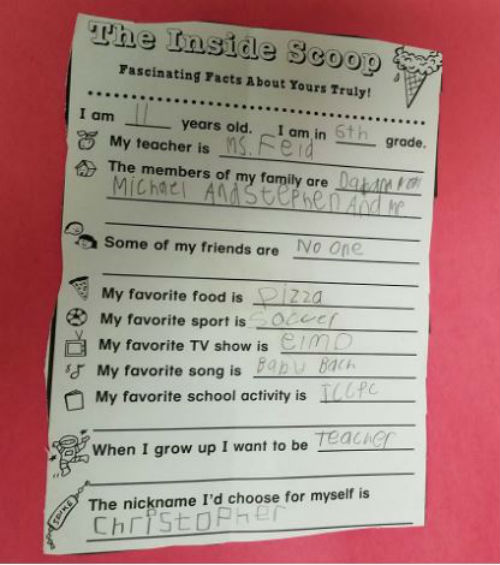 The Inside Scoop
Fascinating Facts About Yours Truly!
I am 11 years old. I am in 6th grade.
My teacher is Ms. Feld
The members of my family are
Michael And Stephen And me
Some of my friends are No one
My favorite food is pizza
My favorite sport is Soccer
My favorite TV show is elmo
My favorite song is Baby Bach
My favorite school activity is
When I grow up I want to be Teacher
The nickname I'd choose for myself is
Christopher
SPIKE